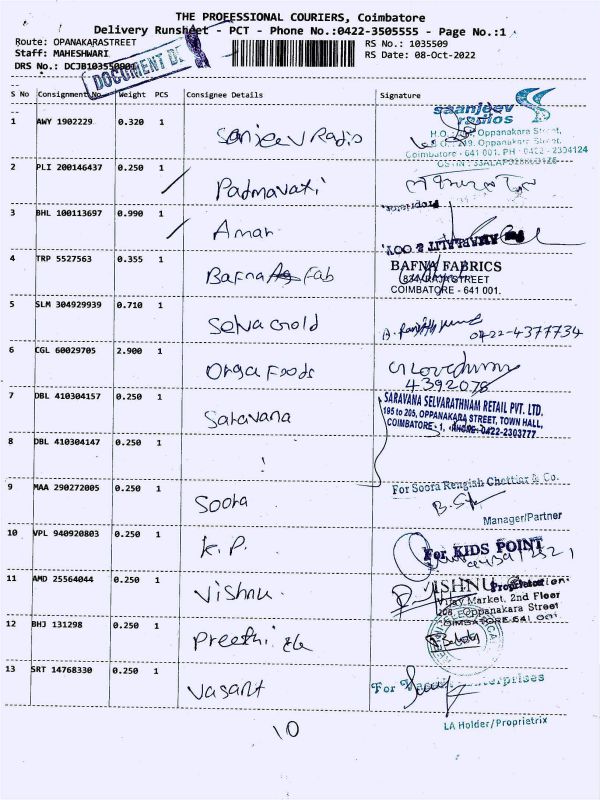 THE PROFESSIONAL COURIERS, Coimbatore
Delivery Runsheet - PCT - Phone No.:0422-3505555 - Page No.:1
Route: OPANAKARASTREET
Staff: MAHESHWARI
DRS No.: DCJB1033500
RS No.: 1035509
RS Date: 08-Oct-2022
DOCUMENT DE
S No Consignment No Weight PCS Consignee Details Signature
1 AWY 1902229 0.320 1 Sanjeev Radio
saanjeev radios
Oppanakara Street,
Oppanakara Street,
Coimbatore - 641 001. PH : 0422 - 2304124
2 PLI 200146437 0.250 1 Padmavati
3 BHL 100113697 0.990 1 Aman
4 TRP 5527563 0.355 1 Bafna Fab
BAFNA FABRICS
STREET
COIMBATORE - 641 001.
5 SLM 304929939 0.710 1 Selva Gold
0422-4377734
6 CGL 60029705 2.900 1 Orga Foods
4392078
7 DBL 410304157 0.250 1 Saravana
SARAVANA SELVARATHNAM RETAIL PVT. LTD.
195 to 205, OPPANAKARA STREET, TOWN HALL,
COIMBATORE - 1, PHONE: 0422-2303777
8 DBL 410304147 0.250 1
9 MAA 290272005 0.250 1 Soora
For Soora Rengish Chettiar & Co.
Manager/Partner
10 VPL 940920803 0.250 1 K.P.
For KIDS POINT
11 AMD 25564044 0.250 1 Vishnu
Proprietor
Vijay Market, 2nd Floor
Oppanakara Street
12 BHJ 131298 0.250 1 Preethi
13 SRT 14768330 0.250 1 Vasant
For
LA Holder/Proprietrix
10